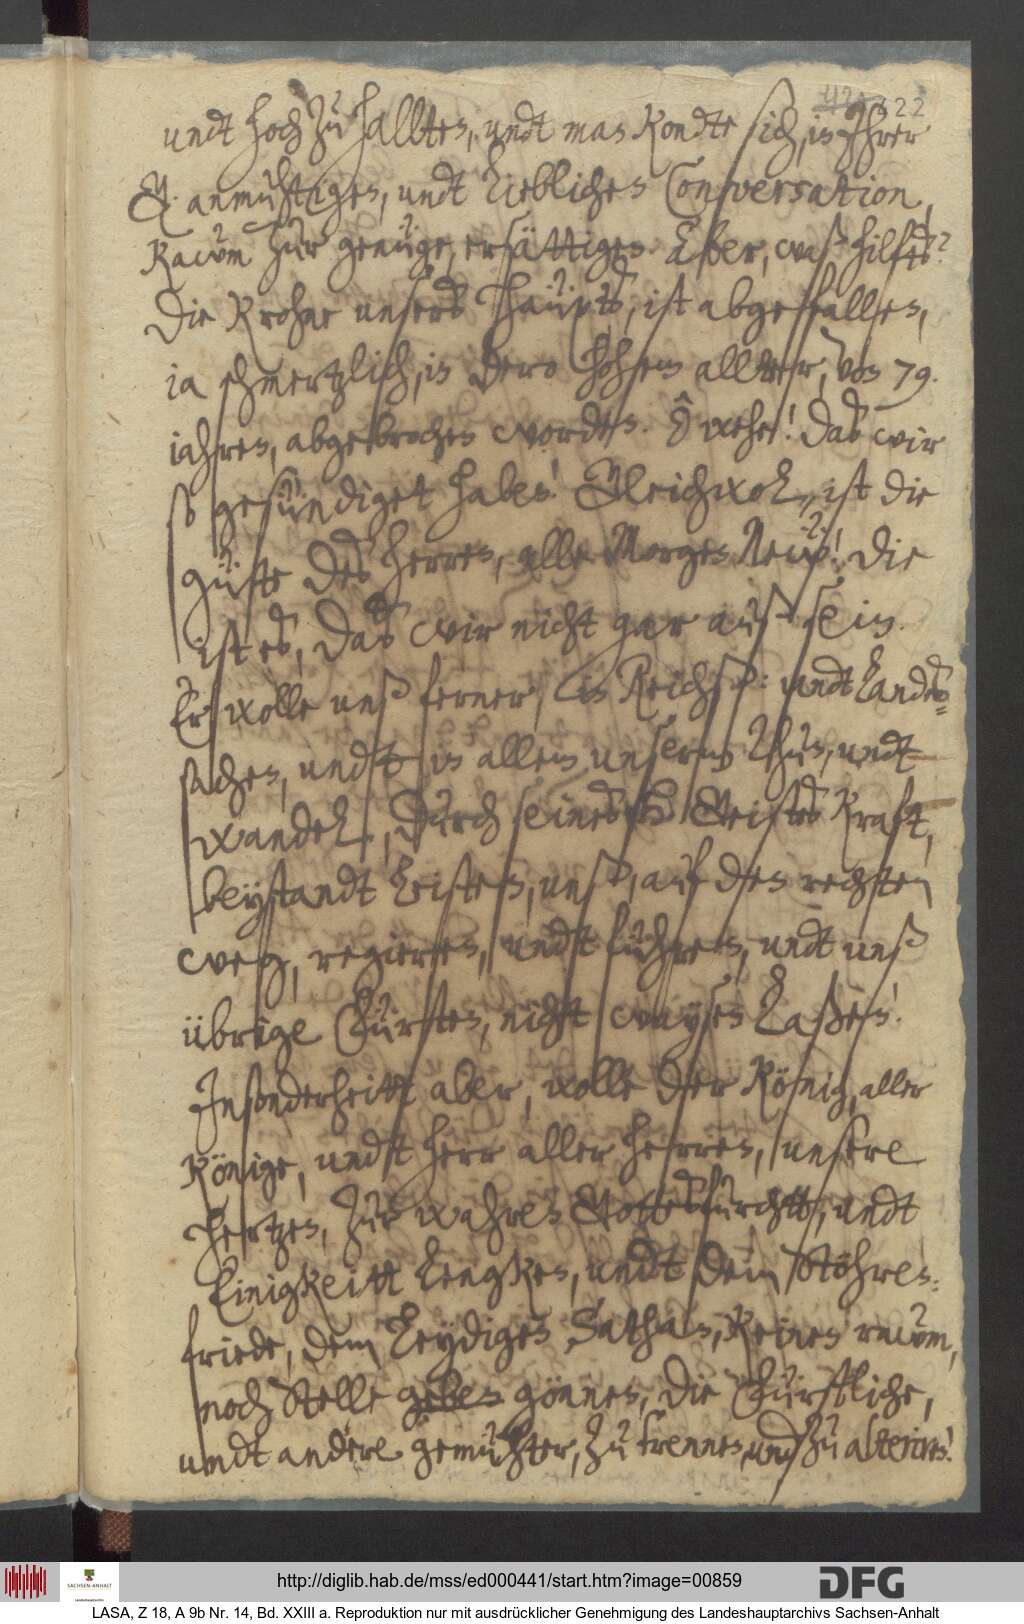 422
undt hoch zu hallten, undt man kondte sich, in Ihrer
E. anmuhtigen, undt lieblichen Conversation,
kaum zur genüge, ersättigen. Aber, waß hilfts?
Die Krohne unsers Häupts, ist abgefallen,
ia schmertzlich, in dero hohem allter, von 79.
iahren, abgebrochen worden. ô wehe! daß wir
so gesündiget haben! Gleichwol, ist die
güte des Herren, alle Morgen New! die
ist es, daß wir nicht gar auß sein.
Er wolle unß ferner, in Reichß: undt Landes-
sachen, undt in allem unserm Thun, undt
wandel, durch seines Geistes Kraft,
beystandt leisten, unß, auf den rechten
weg, regieren, undt führen, undt unß
übrige Fürsten, nicht waysen laßen!
Insonderheitt aber, wolle der König, aller
Könige, undt Herr aller Herren, unsere
Hertzen, zur wahren Gottesfurchtt, undt
Einigkeitt lengken, undt dem Stöhren-
friede, dem leydigen Sathan, keinen raum,
noch Stelle geben gönnen, die Fürstliche,
undt andere gemühter, zu trennen, und zu alteriren!
http://diglib.hab.de/mss/ed000441/start.htm?image=00859
DFG
SACHSEN-ANHALT
LASA, Z 18, A 9b Nr. 14, Bd. XXIII a. Reproduktion nur mit ausdrücklicher Genehmigung des Landeshauptarchivs Sachsen-Anhalt